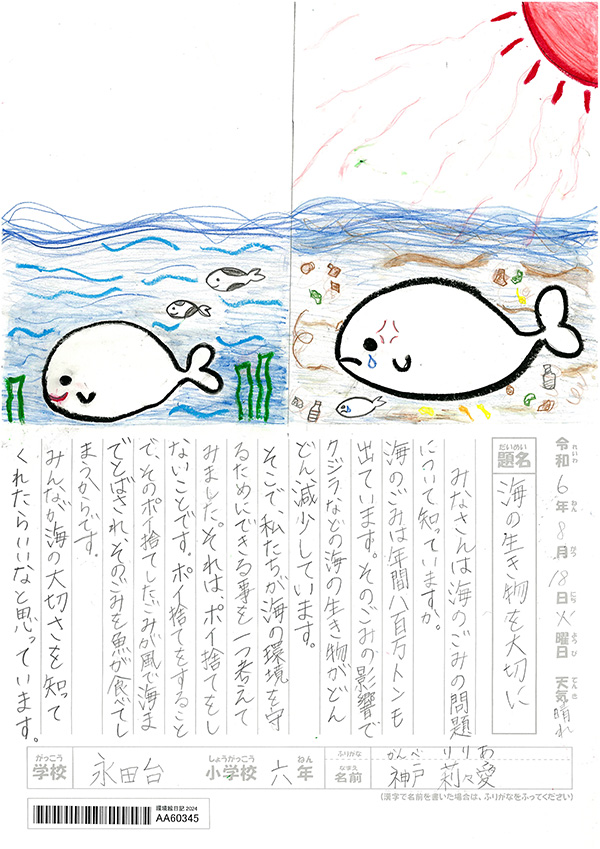 令和6年8月18日火曜日 天気晴れ
れいわ ねん がつ にち ようび てんき
だいめい
題名 海の生き物を大切に
みなさんは海のごみの問題
について知っていますか。
海のごみは年間八百万トンも
出ています。そのごみの影響で
クジラなどの海の生き物がどん
どん減少しています。
そこで、私たちが海の環境を守
るためにできる事を一つ考えて
みました。それは、ポイ捨てをし
ないことです。ポイ捨てをすること
で、そのポイ捨てしたごみが風で海ま
でとばされ、そのごみを魚が食べてし
まうからです。
みんなが海の大切さを知って
くれたらいいなと思っています。
がっこう しょうがっこう ねん ふりがな かんべ りりあ
学校 永田台 小学校 六年 なまえ 名前 神戸 莉々愛
(漢字で名前を書いた場合は、ふりがなをふってください)
環境絵日記2024
AA60345